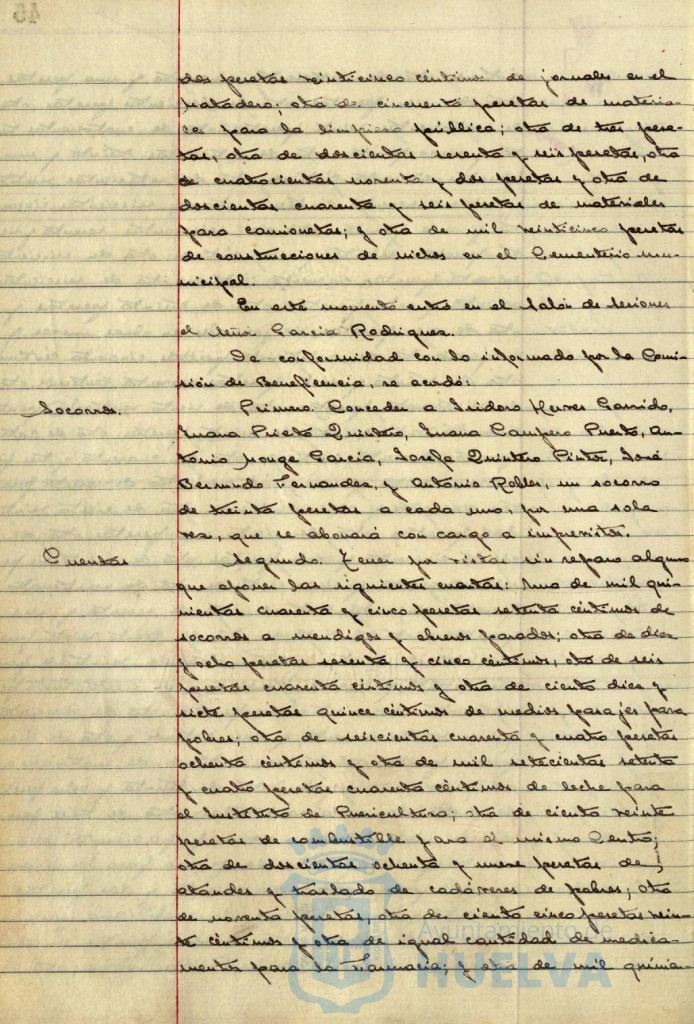 45
dos pesetas veinticinco céntimos de jornales en el
Matadero; otra de cincuenta pesetas de materia-
les para la limpieza pública; otra de tres pese-
tas, otra de doscientas sesenta y seis pesetas, otra
de cuatrocientas noventa y dos pesetas y otra de
doscientas cuarenta y seis pesetas de materiales
para camionetas; y otra de mil veinticinco pesetas
de construcciones de nichos en el Cementerio mu-
nicipal.
En este momento entró en el Salón de Sesiones
el Señor García Rodríguez.
De conformidad con lo informado por la Comi-
sión de Beneficencia, se acordó:
Socorros.
Primero. Conceder a Isidoro Herves Garrido,
Juana Prieto Quintero, Juana Campero Puerto, An-
tonio Monge García, Josefa Quintero Pinto, José
Bermudo Fernandez, y Antonio Robles, un socorro
de treinta pesetas a cada uno, por una sola
vez, que se abonará con cargo a imprevistos.
Cuentas
Segundo. Tener por vistas sin reparo alguno
que oponer las siguientes cuentas: Una de mil qui-
nientas cuarenta y cinco pesetas setenta céntimos de
socorros a mendigos y obreros parados; otra de diez
y ocho pesetas sesenta y cinco céntimos, otra de seis
pesetas cuarenta céntimos y otra de ciento diez y
siete pesetas quince céntimos de medios pasajes para
pobres; otra de seiscientas cuarenta y cuatro pesetas
ochenta céntimos y otra de mil setecientas setenta
y cuatro pesetas cuarenta céntimos de leche para
el Instituto de Puericultura; otra de ciento veinte
pesetas de combustible para el mismo Centro;
otra de doscientas ochenta y nueve pesetas de
ataudes y traslado de cadáveres de pobres; otra
de noventa pesetas, otra de ciento cinco pesetas vein-
te céntimos y otra de igual cantidad de medica-
mentos para la Farmacia; y otra de mil quinien-
Ayuntamiento de
HUELVA